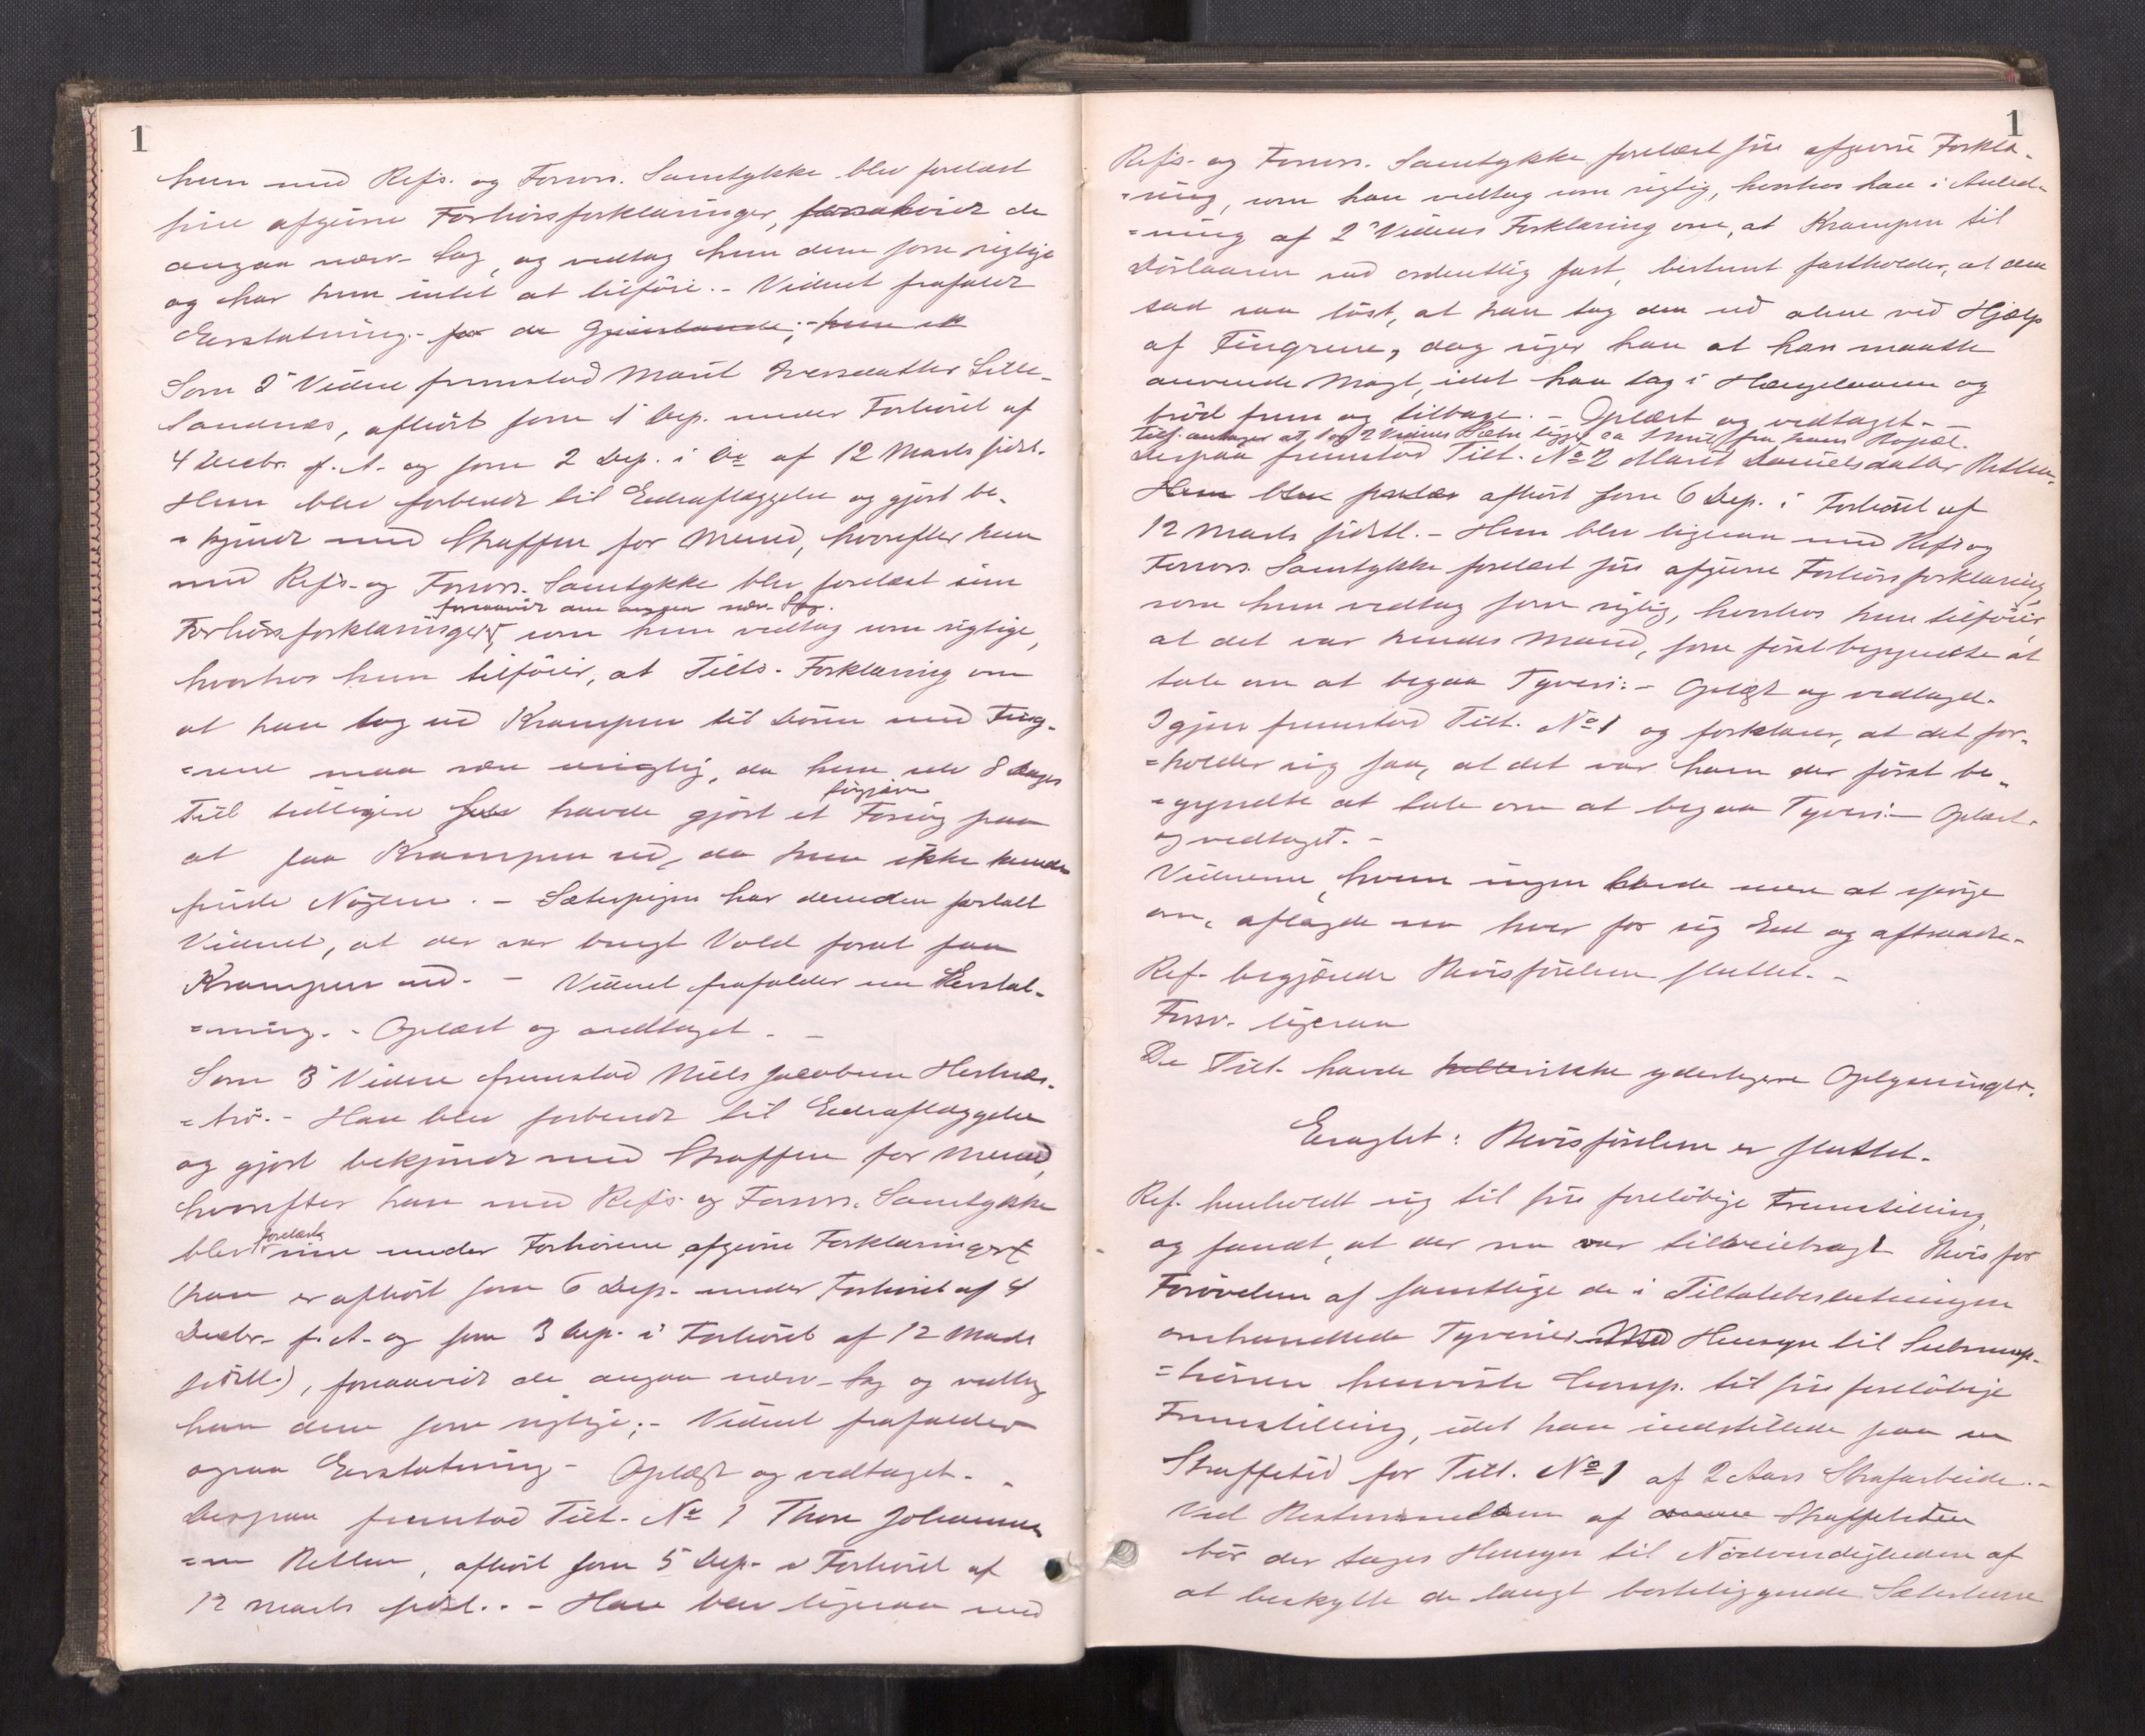 1
hun med Refs. og Forsvs. Samtykke blev forelæst
sine afgivne Forhørsforklaringer, forsaavidt de
angaa nærv. Sag, og vedtog hun dem som rigtige
og har hun intet at tilføie. - Vidnet frafaldt
Erstatning. - for de Gjenstande; - hun ik
Som 2' Vidne fremstod Marit Iversdatter Lille-
Sandnes, afhørt som 1' Dep. under Forhøret af
4 Decbr. f. A. og som 2 Dep. i Do af 12 Marts sidstl.
Hun blev forberedt til Edsaflæggelse og gjort be-
= kjendt med Straffen for Mened, hvorefter hun
med Refs. og Forsvs. Samtykke blev forelæst sine
forsaavidt den angaar nærv. Sag.
Forhørsforklaringer, som hun vedtog som rigtige,
hvorhos hun tilføier, at Tilts. Forklaring om
at han tog ud Krampen til Døren med Fing-
=rene maa være urigtig, da hun selv 8 Dages
forgjæves
Tid tidligere selv havde gjort et Forsøg paa
at faa Krampen ud, da hun ikke kunde
finde Nøglen. - Sæterpigen har desuden fortalt
Vidnet, at der var brugt Vold forat faa
Krampen ud. - Vidnet frafalder nu Erstat-
=ning. - Oplæst og vedtaget. -
Som 3' Vidne fremstod Niels Jacobsen Hestnes-
= - Han blev forberedt til Edsaflæggelse
og gjort bekjendt med Straffen for Mened,
hvorefter han med Refs. og Forsvs. Samtykke
forelæst
blev sine under Forhørene afgivne Forklaringer
(han er afhørt som 6 Dep. under Forhøret af 4
Decbr. f. A. og som 3 Dep. i Forhøret af 12 Marts
sidstl.), forsaavidt de angaa nærv. Sag og vedtog
han dem som rigtige; - Vidnet frafalder
ogsaa Erstatning - Oplæst og vedtaget. -
Derpaa fremstod Tilt. No 1 Thore Johannes-
=en Retten, afhørt som 5 Dep. i Forhøret af
12 Marts sidstl. - Han blev ligesaa med
1
Refs. og Forsvs. Samtykke forelæst sin afgivne Forkla-
=ring, som han vedtog som rigtig, hvorhos han i Anled-
=ning af 2' Vidnes Forklaring om, at Krampen til
Dørlaasen sad ordentlig fast, bestemt fastholder, at den
sad saa løst, at han tog den ud alene ved Hjælp
af Fingrene, dog siger han at han maatte
anvende Magt, idet han tog i Hængelaasen og
brød frem og tilbage. - Oplæst og vedtaget. -
Tilt. antager at 1 og 2 Vidnes Sætre ligger ca 1 Mil fra hans Bopæl.
Derpaa fremstod Tilt. No 2 Marit Danielsdatter Retten,
Hun blev forelæs afhørt som 6 Dep. i Forhøret af
12 Marts sidstl. - Hun blev ligesaa med Refs og
Forsvs. Samtykke forelæst sin afgivne Forhørsforklaring,
som hun vedtog som rigtig, hvorhos hun tilføier,
at det var hendes Mand, som først begyndte at
tale om at begaa Tyveri. - Oplæst og vedtaget.
Igjen fremstod Tilt. No 1 og forklarer, at det for-
=holder sig saa, at det var ham der først be-
=gyndte at tale om at begaa Tyveri. - Oplæst
og vedtaget. -
Vidnerne, hvem ingen havde mere at spørge
om, aflagde nu hver for sig Ed og aftraadte. -
Ref. begjærede Bevisførelsen sluttet. -
Forsv. ligesaa
De Tilt. havde heller ikke yderligere Oplysninger.
Eragtet: Bevisførelsen er sluttet.
Ref. henholdt sig til sin foreløbige Fremstilling,
og fandt, at der nu var tilveiebragt Bevis for
Forøvelsen af samtlige de i Tiltalebeslutningen
omhandlede Tyverier. Med Hensyn til Subsump-
=tionen henviste Comp. til sin foreløbige
Fremstilling, idet han indstillede paa en
Straffetid for Tilt. No 1 af 2 Aars Strafarbeide. -
Ved Bestemmelsen af Straffetiden
bør der tages Hensyn til Nødvendigheden af
at beskytte de langt bortliggende Sæterhuse